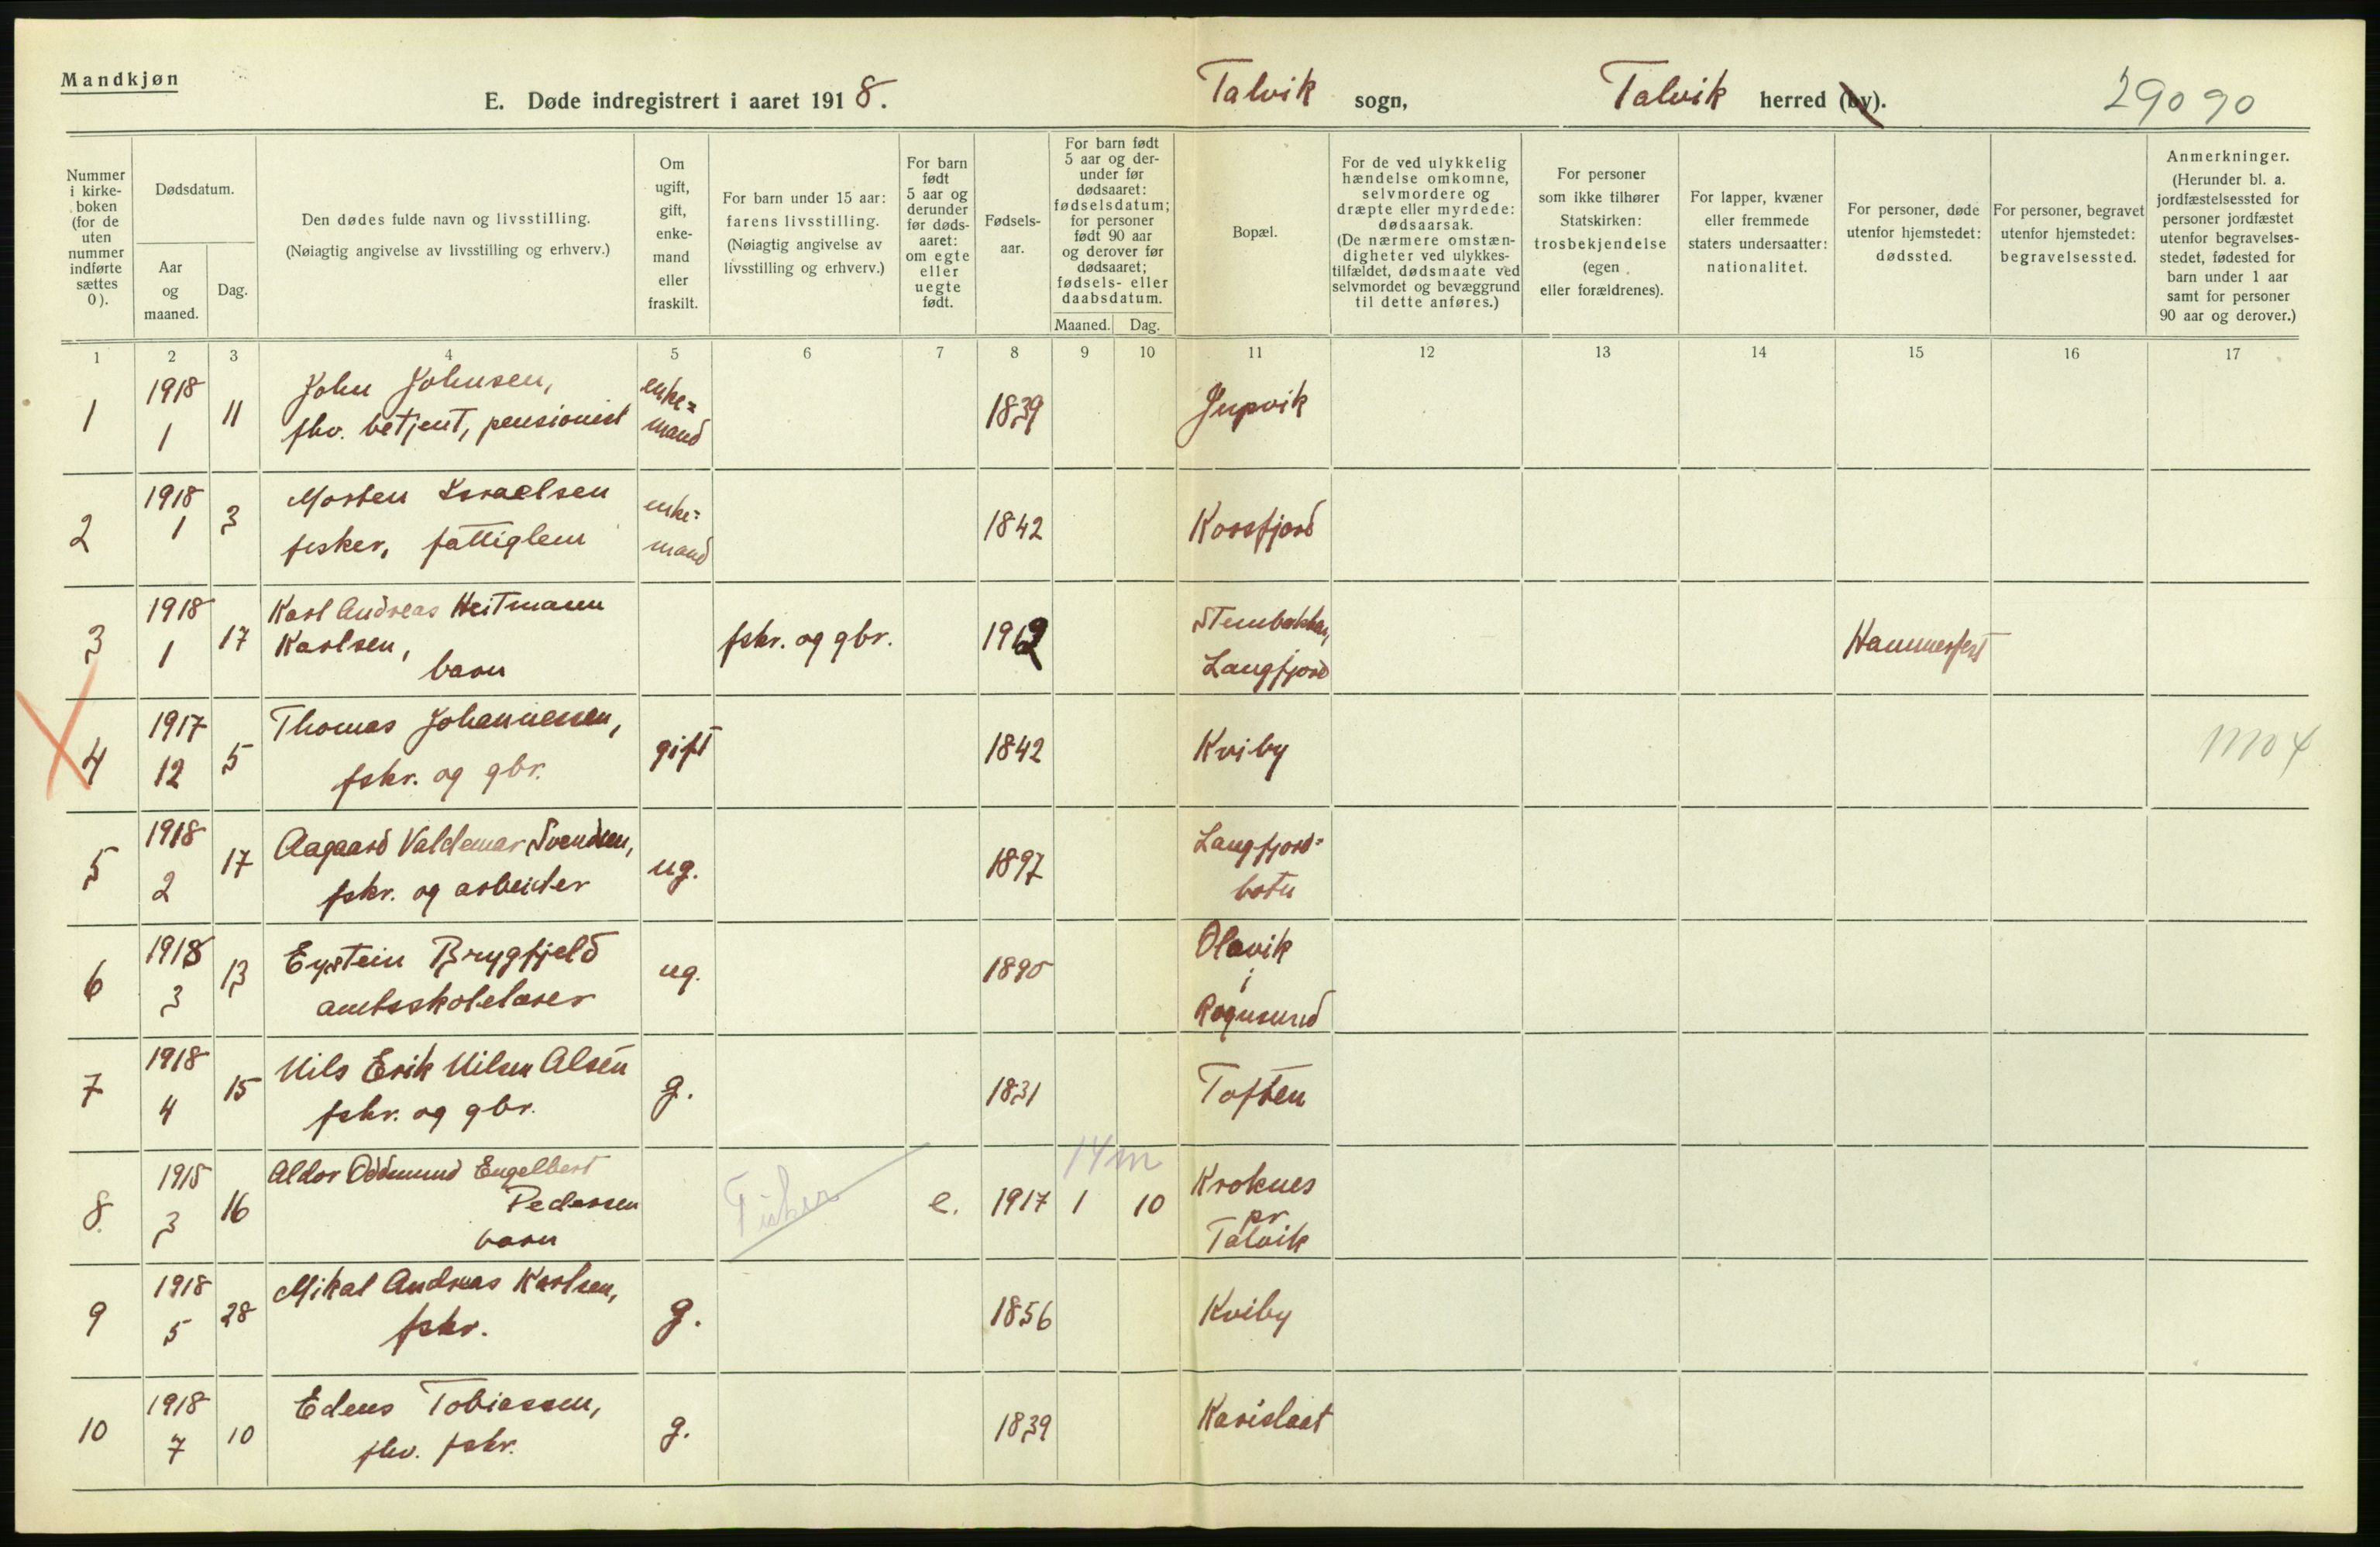 Mandkjøn
E. Døde indregistrert i aaret 1918.
Talvik sogn,
Talvik herred (by).
29090
Nummer i kirkeboken (for de uten nummer indførte sættes 0).
Dødsdatum.
Aar og maaned.
Dag.
Den dødes fulde navn og livsstilling.
(Nøiagtig angivelse av livsstilling og erhverv.)
Om ugift, gift, enkemand eller fraskilt.
For barn under 15 aar: farens livsstilling.
(Nøiagtig angivelse av livsstilling og erhverv.)
For barn født 5 aar og derunder før dødsaaret: om egte eller uegte født.
Fødselsaar.
For barn født 5 aar og derunder før dødsaaret: fødselsdatum; for personer født 90 aar og derover før dødsaaret; fødsels- eller daabsdatum.
Maaned.
Dag.
Bopæl.
For de ved ulykkelig hændelse omkomne, selvmordere og dræpte eller myrdede: dødsaarsak.
(De nærmere omstændigheter ved ulykkestilfældet, dødsmaate ved selvmordet og bevæggrund til dette anføres.)
For personer som ikke tilhører Statskirken: trosbekjendelse (egen eller forældrenes).
For lapper, kvæner eller fremmede staters undersaatter: nationalitet.
For personer, døde utenfor hjemstedet: dødssted.
For personer, begravet utenfor hjemstedet: begravelsessted.
Anmerkninger.
(Herunder bl. a. jordfæstelsessted for personer jordfæstet utenfor begravelsesstedet, fødested for barn under 1 aar samt for personer 90 aar og derover.)
1 2 3 4 5 6 7 8 9 10 11 12 13 14 15 16 17
1 1918 1 11 John Johnsen, fhv. betjent, pensionist enke=mand 1839 Jupvik
2 1918 1 3 Morten Israelsen fisker, fattiglem enke=mand 1842 Korsfjord
3 1918 1 17 Karl Andreas Heitmann Karlsen, barn fskr. og gbr. 1912 Langfjord Hammerfest
4 1917 12 5 Thomas Johannessen, fskr. og gbr. gift 1842 Kviby
5 1918 2 17 Aagaard Valdemar Svendsen, fskr. og arbeider ug. 1897 Langfjord=botn
6 1918 3 13 Eystein Brygfjeld amtsskolelærer ug. 1890 Olavik i Rognsund
7 1918 4 15 Nils Erik Nilsen Alsén fskr. og gbr. g. 1831 Toften
8 1918 3 16 Aldor Oddmund Engelbert Pedersen barn Fisker e. 1917 1 10 14m Kroknes pr Talvik
9 1918 5 28 Mikal Andreas Karlsen, fskr. g. 1856 Kviby
10 1918 7 10 Edens Tobiassen, fhv. fskr. g. 1839 Karislaat